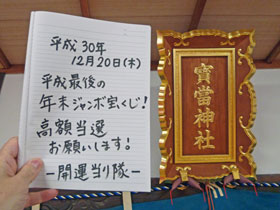 平成30年
12月20日(木)
平成最後の
年末ジャンボ宝くじ!
高額当選
お願いします!
ー開運当り隊ー
寳當神社